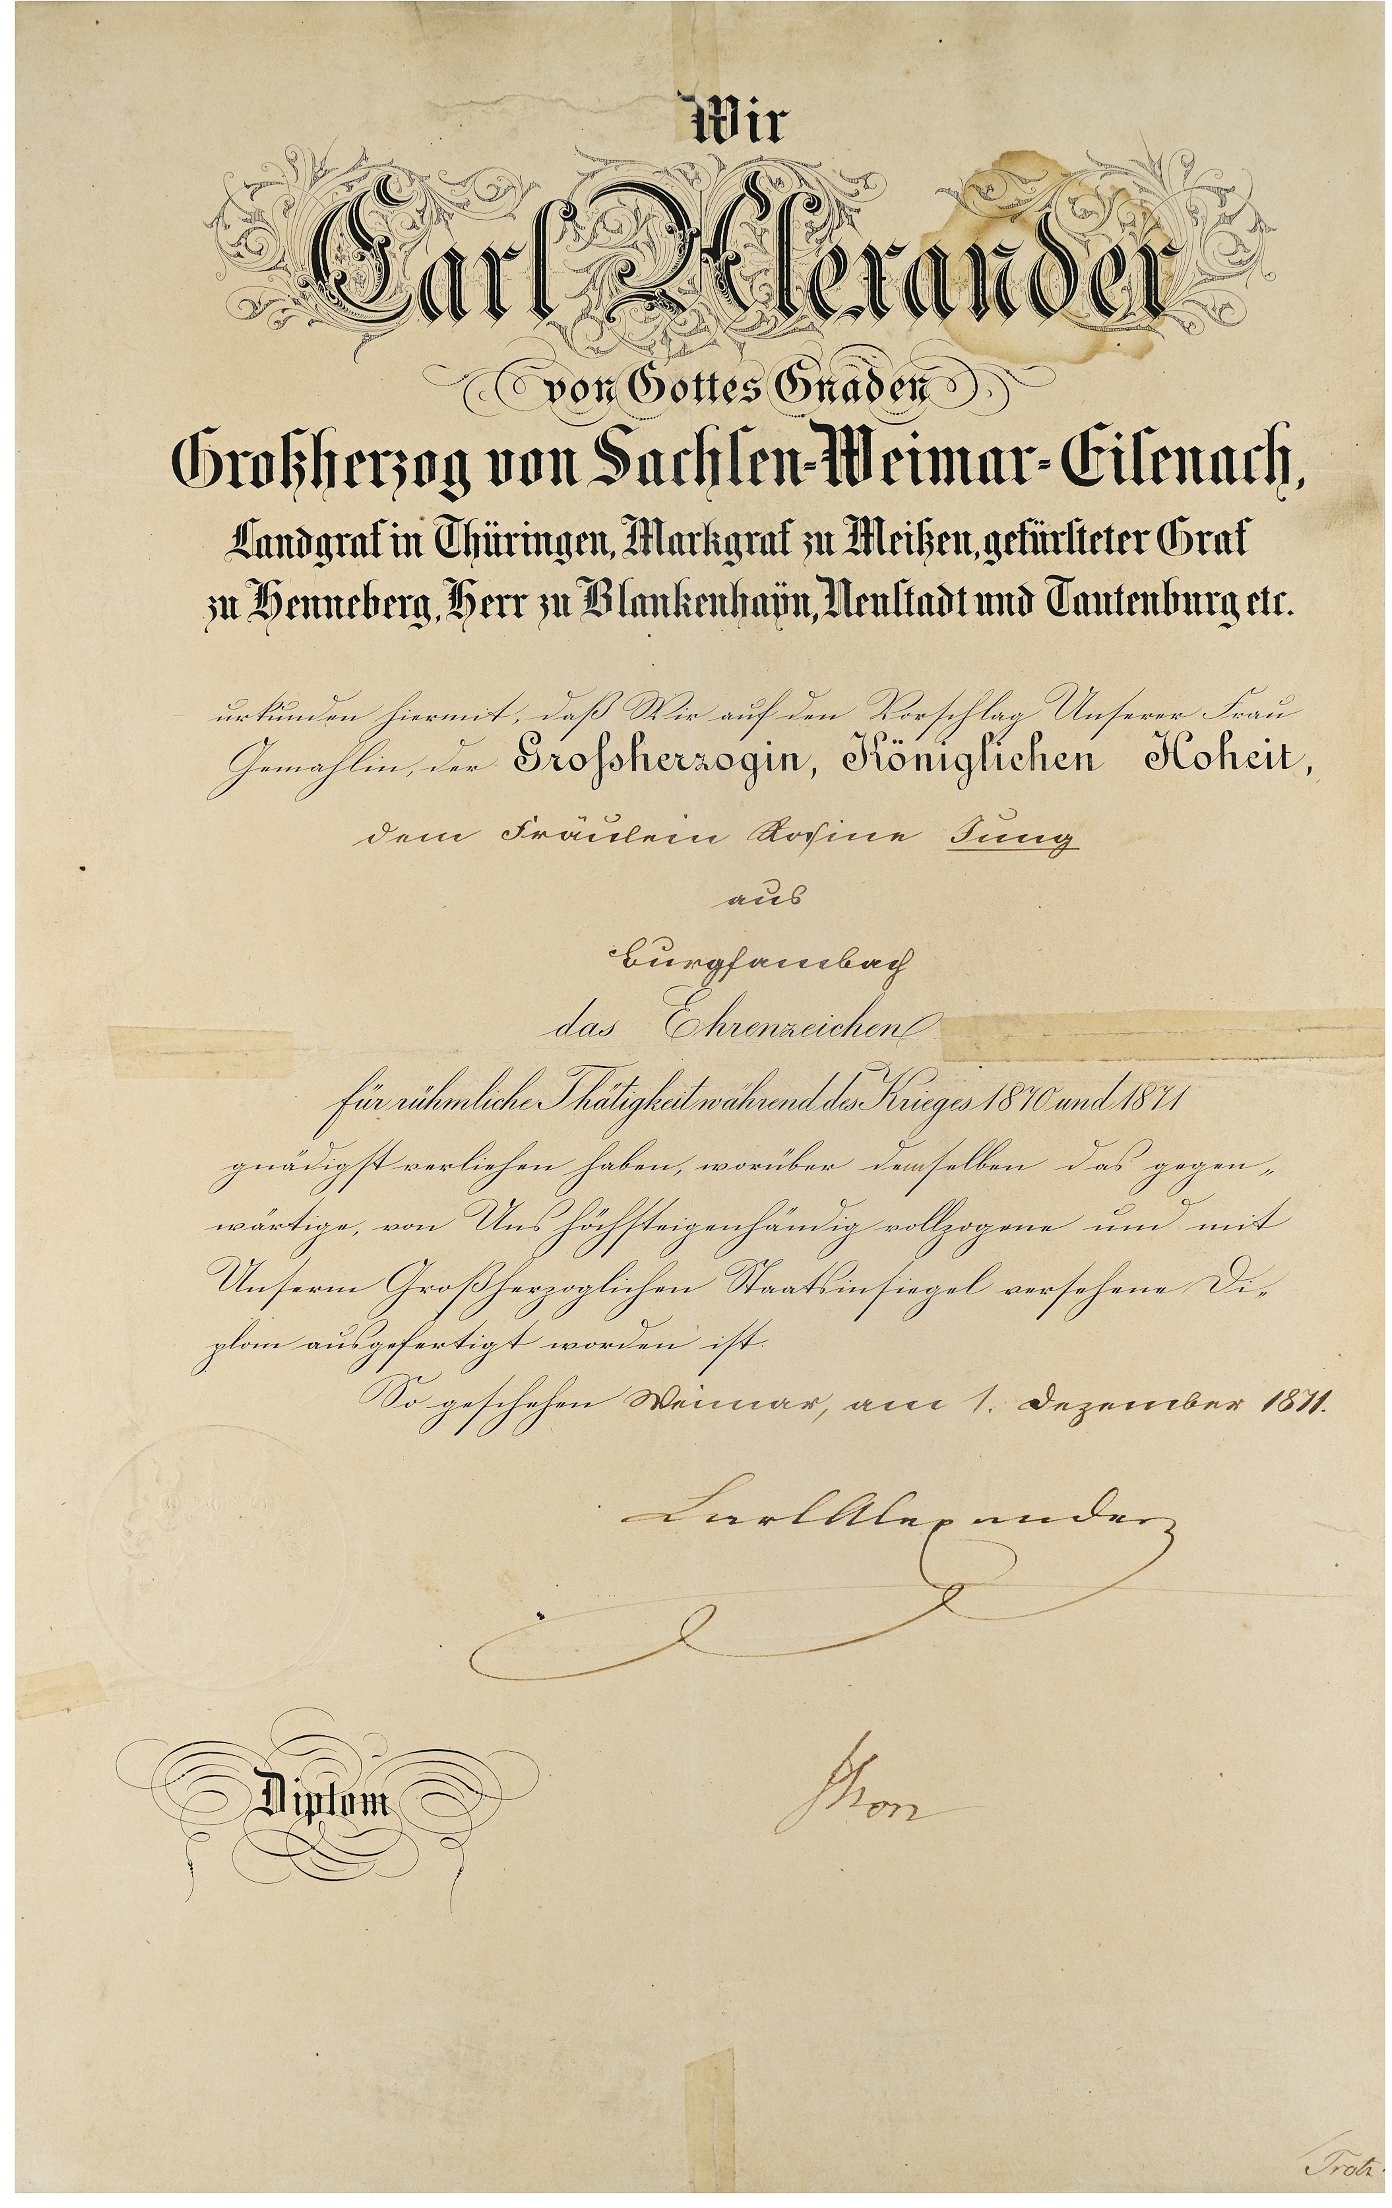 Wir
Carl Alexander
von Gottes Gnaden
Großherzog von Sachsen-Weimar-Eisenach,
Landgraf in Thüringen, Markgraf zu Meißen, gefürsteter Graf
zu Henneberg, Herr zu Blankenhaÿn, Neustadt und Tautenburg etc.
urkunden hiermit, daß Wir auf den Vorschlag Unserer Frau
Gemahlin, der Grossherzogin, Königlichen Hoheit,
dem Fräulein Rosine Jung
aus
Burgfarrnbach
das Ehrenzeichen
für rühmliche Thätigkeit während des Krieges 1870 und 1871
gnädigst verliehen haben, worüber demselben das gegen-
wärtige, von Uns höchsteigenhändig vollzogene und mit
Unserm Großherzoglichen Staatsinsiegel versehene Di-
plom ausgefertigt worden ist.
So geschehen Weimar, am 1. Dezember 1871.
Carl Alexander
Thon
Diplom